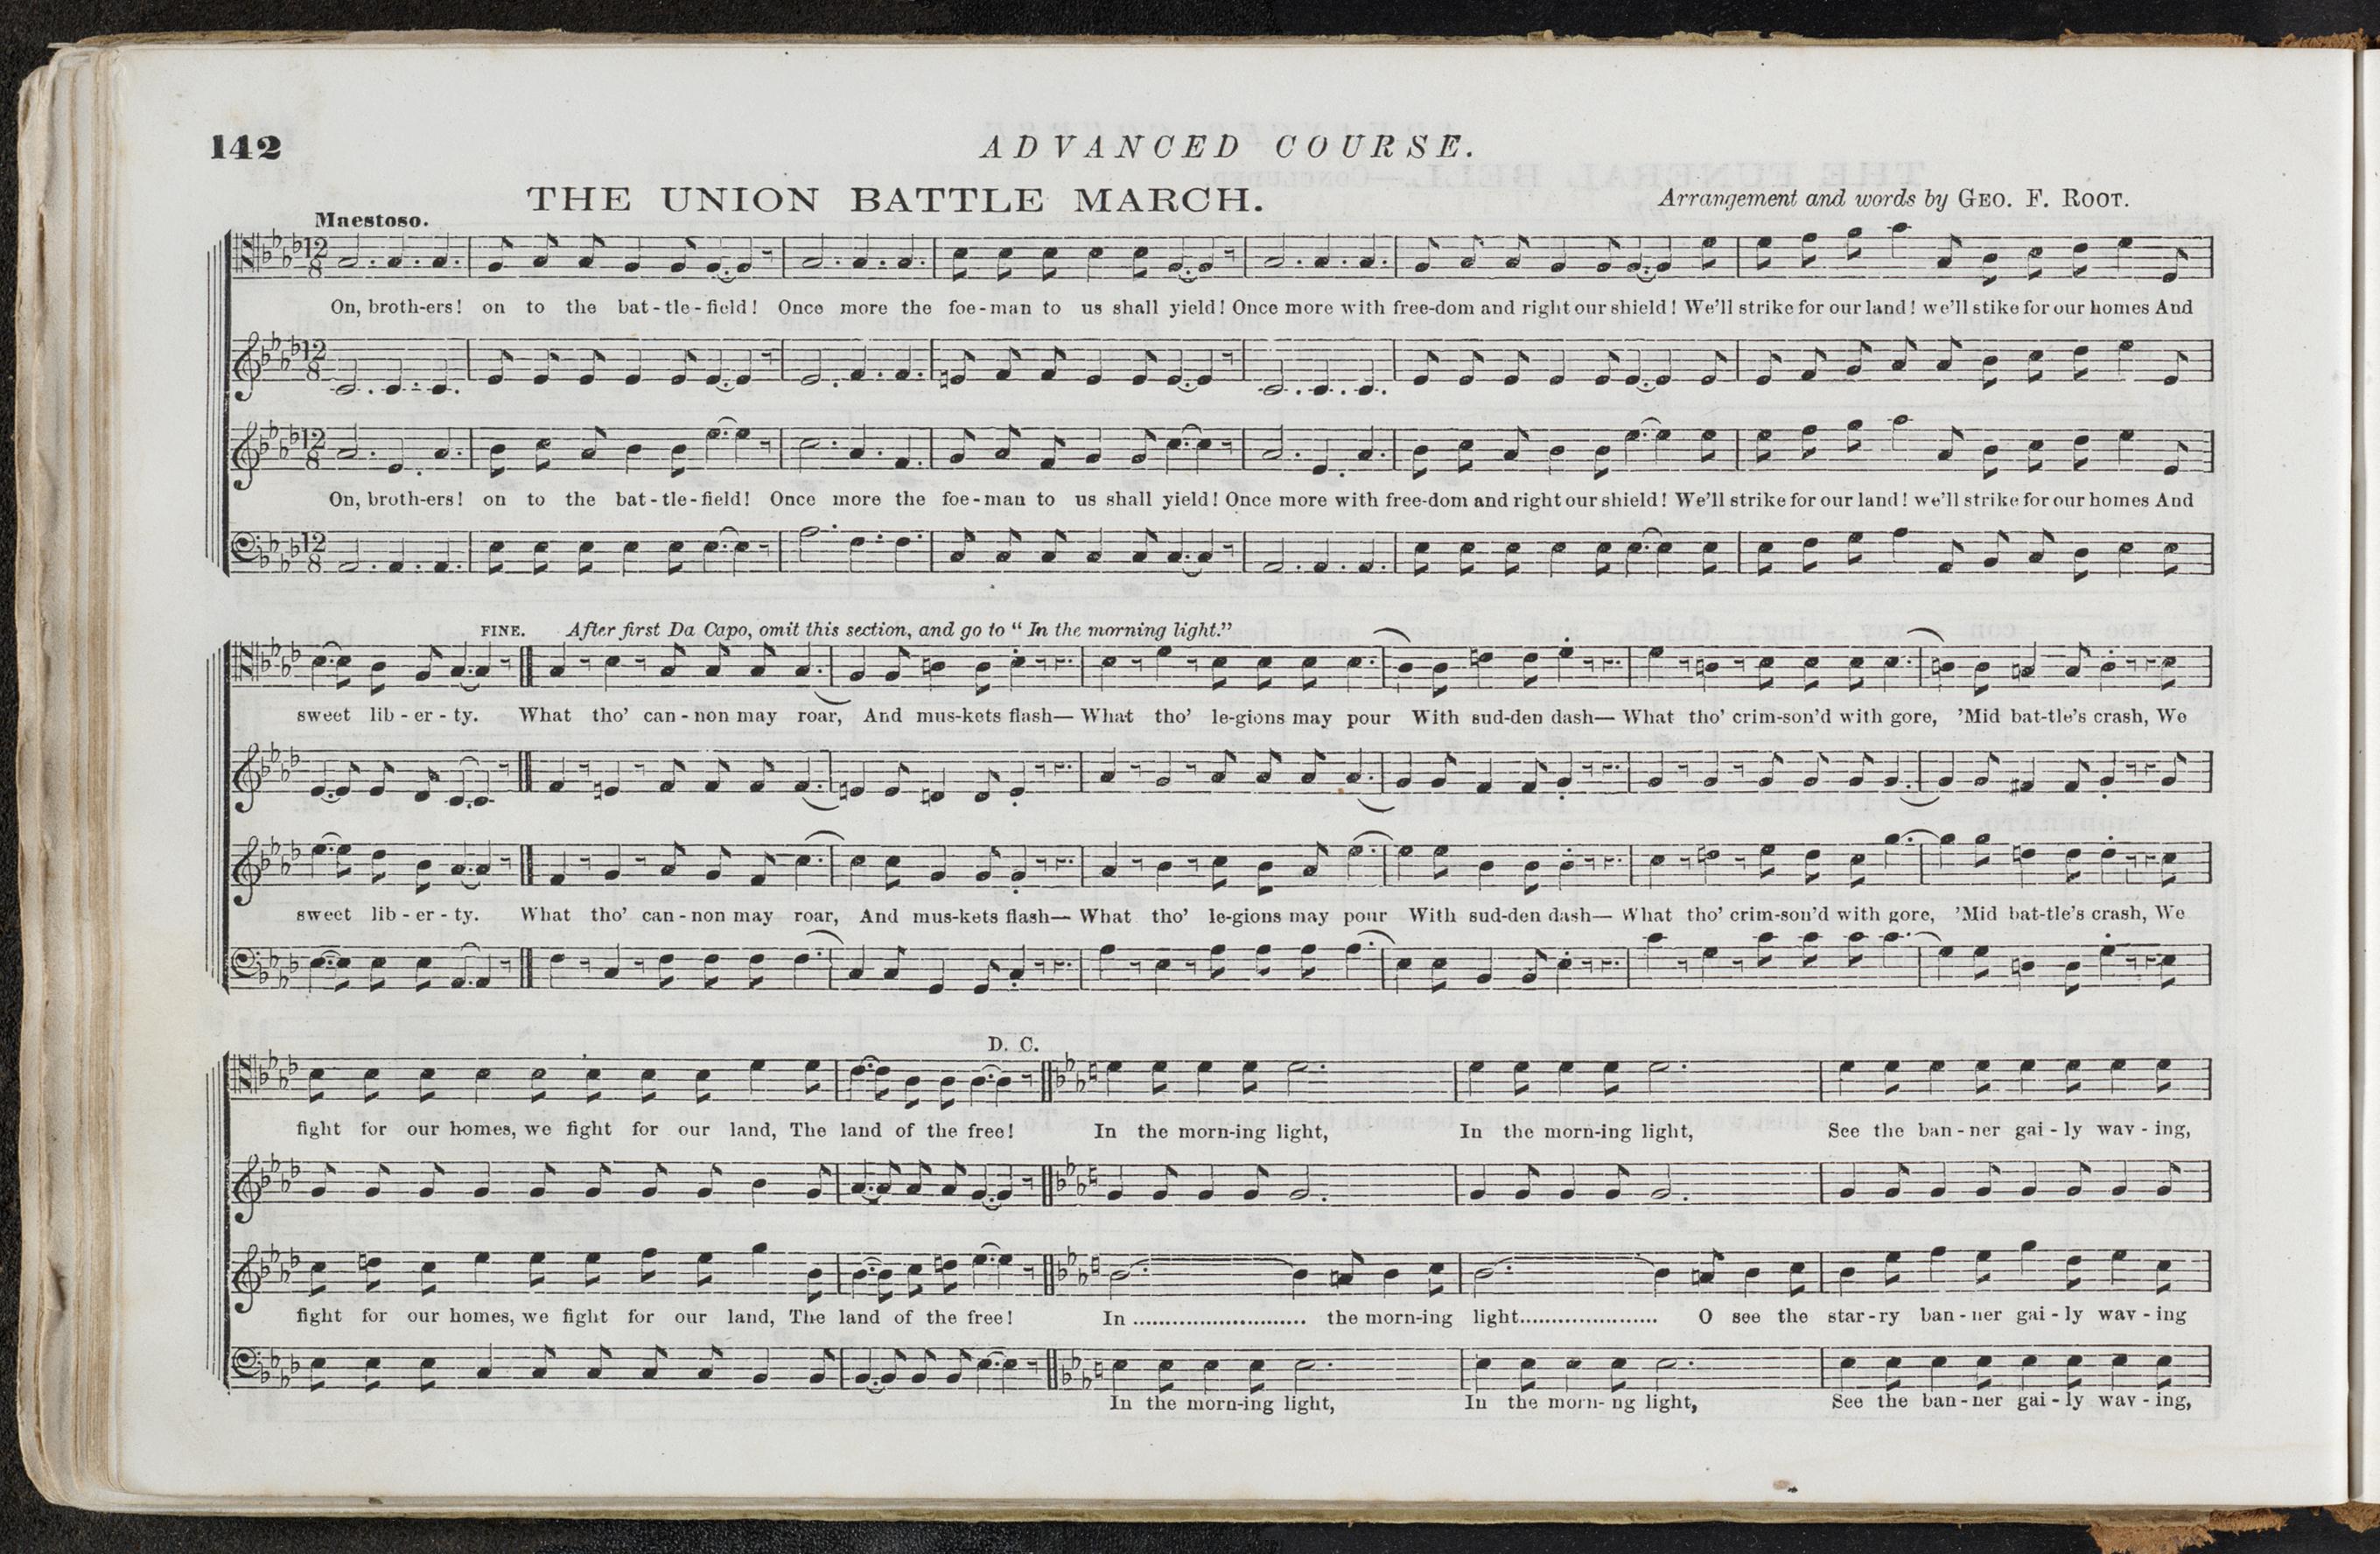 142
ADVANCED COURSE.
THE UNION BATTLE MARCH.
Arrangement and words by GEO. F. ROOT.
Maestoso.
12 8
On, broth-ers! on to the bat - tle - field! Once more the foe - man to us shall yield! Once more with free-dom and right our shield! We'll strike for our land! we'll stike for our homes And
12 8
12 8
On, broth-ers! on to the bat - tle - field! Once more the foe - man to us shall yield! Once more with free-dom and right our shield! We'll strike for our land! we'll strike for our homes And
12 8
FINE. After first Da Capo, omit this section, and go to “ In the morning light.”
sweet lib - er - ty. What tho' can - non may roar, And mus-kets flash— What tho' le-gions may pour With sud-den dash— What tho' crim-son'd with gore, 'Mid bat-tle's crash, We
sweet lib - er - ty. What tho' can - non may roar, And mus-kets flash— What tho' le-gions may pour With sud-den dash— What tho' crim-son'd with gore, 'Mid bat-tle's crash, We
D. C.
fight for our homes, we fight for our land, The land of the free! In the morn-ing light, In the morn-ing light, See the ban - ner gai - ly wav - ing,
fight for our homes, we fight for our land, The land of the free! In ........................... the morn-ing light...................... O see the star - ry ban - ner gai - ly wav - ing
In the morn-ing light, In the morn- ng light, See the ban - ner gai - ly wav - ing,